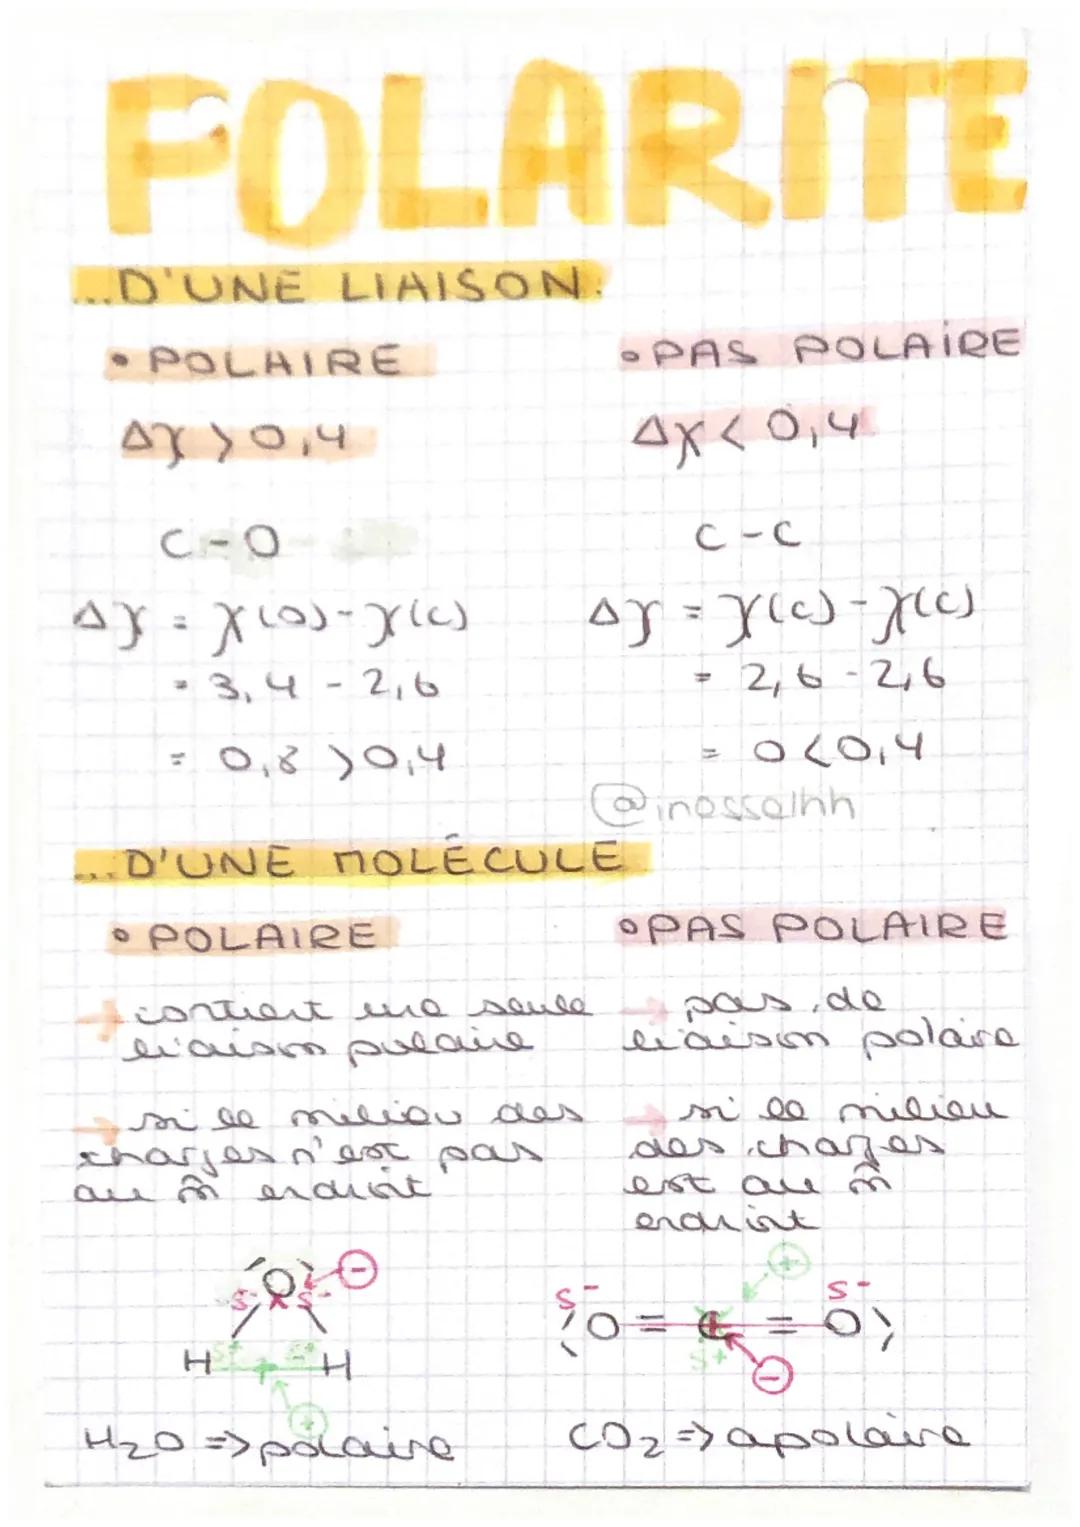 POLARITE
...D'UNE LIAISON:
• POLAIRE
Δχ > 0,4
C - O
Δχ = χ(O) - χ(C)
= 3,4 - 2,6
= 0,8 > 0,4
• PAS POLAIRE
Δχ < 0,4
C - C
Δχ = χ(C) - χ(C)
= 2,6 - 2,6
= 0 < 0,4
@inessalhh
...D'UNE MOLÉCULE
• POLAIRE
→ contient une seule
liaison polaire
→ si le milieu des
charges n'est pas
au m̂ endroit
O
δ- δ-
-
H δ+ + δ+ H
+
H2O => polaire
• PAS POLAIRE
→ pas de
liaison polaire
→ si le milieu
des charges
est au m̂
endroit
+
δ- δ-
O = C = O
δ+
-
CO2 => apolaire